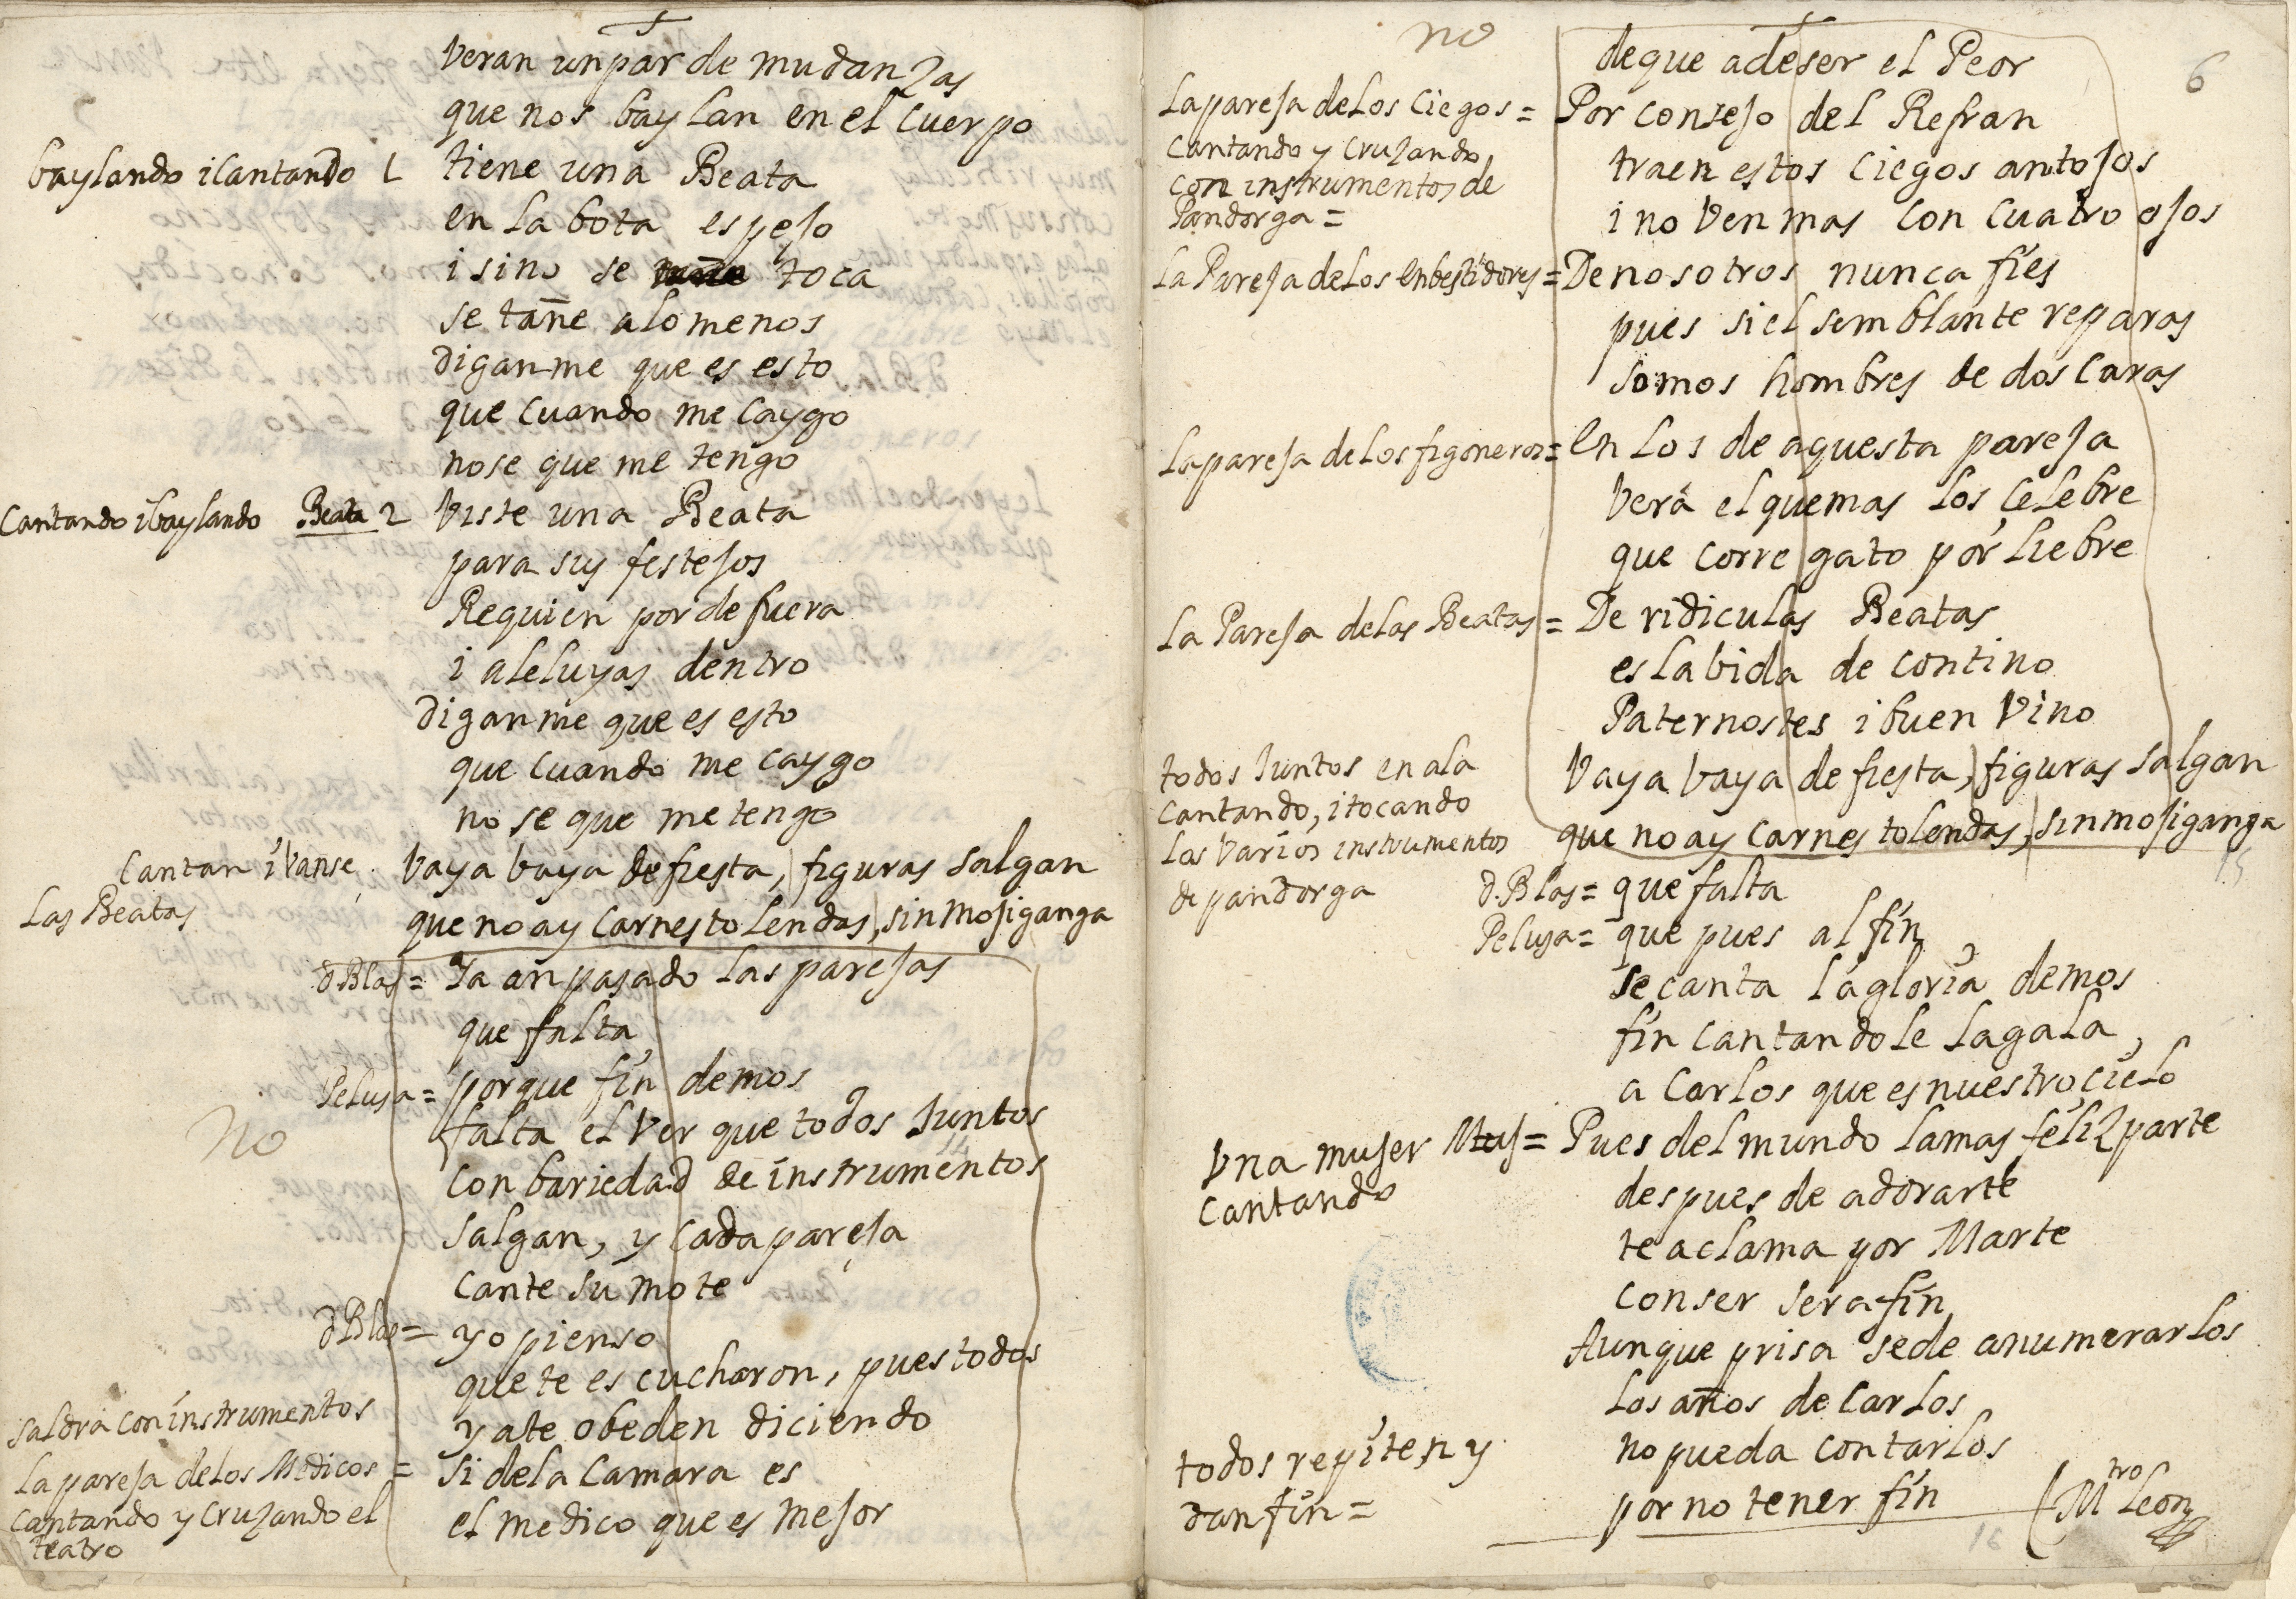 Veran un par de mudanzas
que nos baylan en el cuerpo
baylando i cantando 1 tiene una Beata
en la bota espejo
i sino se toca
se tañe alomenos
diganme que es esto
que cuando me caygo
nose que me tengo
Cantando ibaylando Beata 2 Viste una Beata
para sus festejos
Requien por de fuera
i aleluyas dentro
diganme que es esto
que cuando me caygo
no se que me tengo
Cantan i vanse Vaya vaya de fiesta, figuras salgan
Las Beatas
que no ay carnestolendas, sin mojiganga
d Blas= Ya an pasado las parejas
que falta
Pelusa= porque fin demos
no
falta el ver que todos Juntos
con bariedad de instrumentos
salgan, y cada pareja
cante su mote
d Blas= yo pienso
que te escucharon, pues todos
saldra con instrumentos
yate obeden diciendo
la pareja delos Medicos = Si dela Camara es
cantando y cruzando el
teatro
el medico que es mejor
no
deque adeser el Peor
6
La pareja delos Ciegos= Por consejo del Refran
cantando y cruzando
con instrumentos de
Pandorga=
traen estos ciegos antojos
i no ven mas con cuatro ojos
La Pareja delos enbestidores= De nosotros nunca fies
pues si el semblante reparas
somos hombres de dos caras
La pareja delos figoneros= En los de aquesta pareja
verá elquemas los celebre
que corre gato por liebre
La Pareja delas Beatas= De ridiculas Beatas
es la bida de contino
Paternostes i buen vino
todos Juntos en ala
cantando, i tocando
los varios instrumentos
de pandorga
Vaya vaya de fiesta, figuras salgan
que no ay carnes tolendas, sin mojiganga
15
d.Blas= que falta
Pelusa= que pues al fin
se canta la gloria demos
fin cantandole lagala,
a Carlos que es nuestro cielo
Vna mujer Mus= Pues del mundo lamas feliz parte
cantando
despues de adorarte
te aclama por Marte
con ser serafin
Aunque prisa sede anumerarlos
los años de Carlos
no pueda contarlos
todos repiten y
dan fin=
por no tener fin
Mtro Leon
16